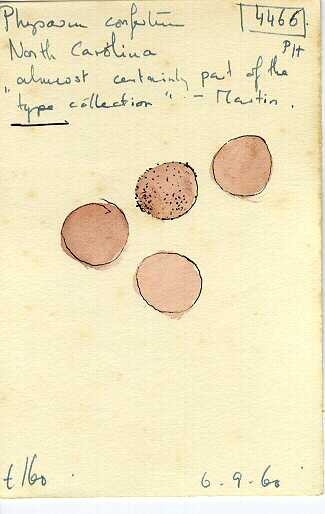 Physarum confertum
4466
PH
North Carolina
"almost certainly part of the
type collection" - Martin.
t/60
6-9-60